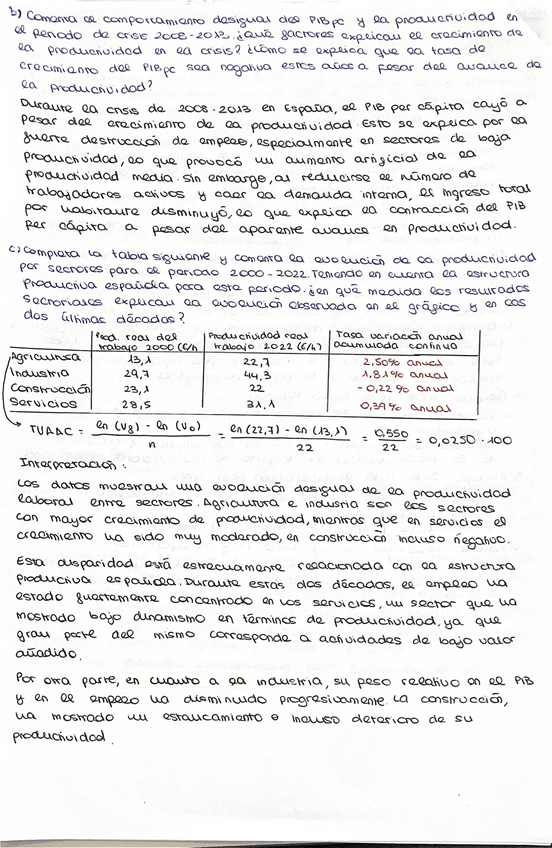 b) Comenta el comportamiento desigual del PIBpc y la productividad en
el periodo de crisis 2008-2013. ¿Qué factores explican el crecimiento de
la productividad en la crisis? ¿Cómo se explica que la tasa de
crecimiento del PIBpc sea negativa estos años a pesar del avance de
la productividad?
Durante la crisis de 2008-2013 en España, el PIB per cápita cayó a
pesar del crecimiento de la productividad. Esto se explica por la
fuerte destrucción de empleo, especialmente en sectores de baja
productividad, lo que provocó un aumento artificial de la
productividad media. Sin embargo, al reducirse el número de
trabajadores activos y caer la demanda interna, el ingreso total
por habitante disminuyó, lo que explica la contracción del PIB
per cápita a pesar del aparente avance en productividad.
c) Completa la tabla siguiente y comenta la evolución de la productividad
por sectores para el periodo 2000-2022. Teniendo en cuenta la estructura
productiva española para este periodo. ¿en qué medida los resultados
sectoriales explican la evolución observada en el gráfico y en las
dos últimas décadas?
Prod. real del trabajo 2000 (€/h Productividad real trabajo 2022 (€/h) Tasa variación anual acumulada continua
Agricultura 13,1 22,7 2,50% anual
Industria 29,7 44,3 1,81% anual
Construcción 23,1 22 -0,22% anual
Servicios 28,5 31,1 0,39% anual
TVAAC = ln (V8) - ln (V0) / n = ln (22,7) - ln (13,1) / 22 = 0,550 / 22 = 0,0250 · 100
Interpretación:
Los datos muestran una evolución desigual de la productividad
laboral entre sectores. Agricultura e industria son los sectores
con mayor crecimiento de productividad, mientras que en servicios el
crecimiento ha sido muy moderado, en construcción incluso negativo.
Esta disparidad está estrechamente relacionada con la estructura
productiva española. Durante estas dos décadas, el empleo ha
estado fuertemente concentrado en los servicios, un sector que ha
mostrado bajo dinamismo en términos de productividad, ya que
gran parte del mismo corresponde a actividades de bajo valor
añadido.
Por otra parte, en cuanto a la industria, su peso relativo en el PIB
y en el empleo ha disminuido progresivamente la construcción,
ha mostrado un estancamiento e incluso deterioro de su
productividad.